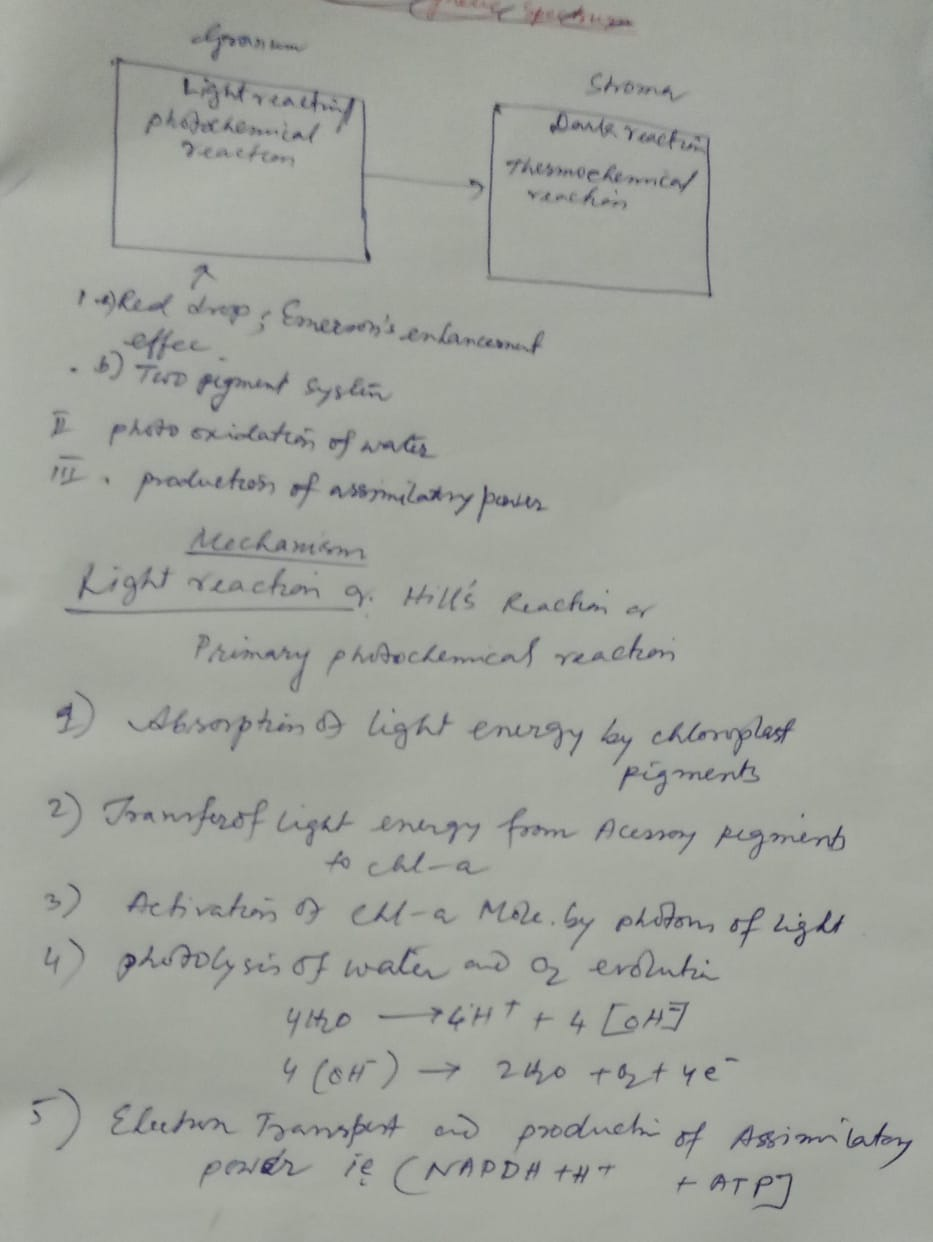 Spectrum
Granum
Stroma
Light reaction
photochemical
reaction
Dark reaction
Thermochemical
reaction
1 a) Red drop; Emerson's enhancement
effec
b) Two pigment system
II photo oxidation of water
III. production of assimilatory power
Mechanism
Light reaction or Hill's Reaction or
Primary photochemical reaction
1) Absorption of light energy by chloroplast
pigments
2) Transfer of light energy from Acessory pigments
to chl-a
3) Activation of chl-a Mole. by photons of light
4) photolysis of water and O2 evolution
4H2O → 4H+ + 4[OH-]
4(OH-) → 2H2O + O2 + 4e-
5) Electron Transport and production of Assimilatory
power ie (NAPDH + H+ + ATP]